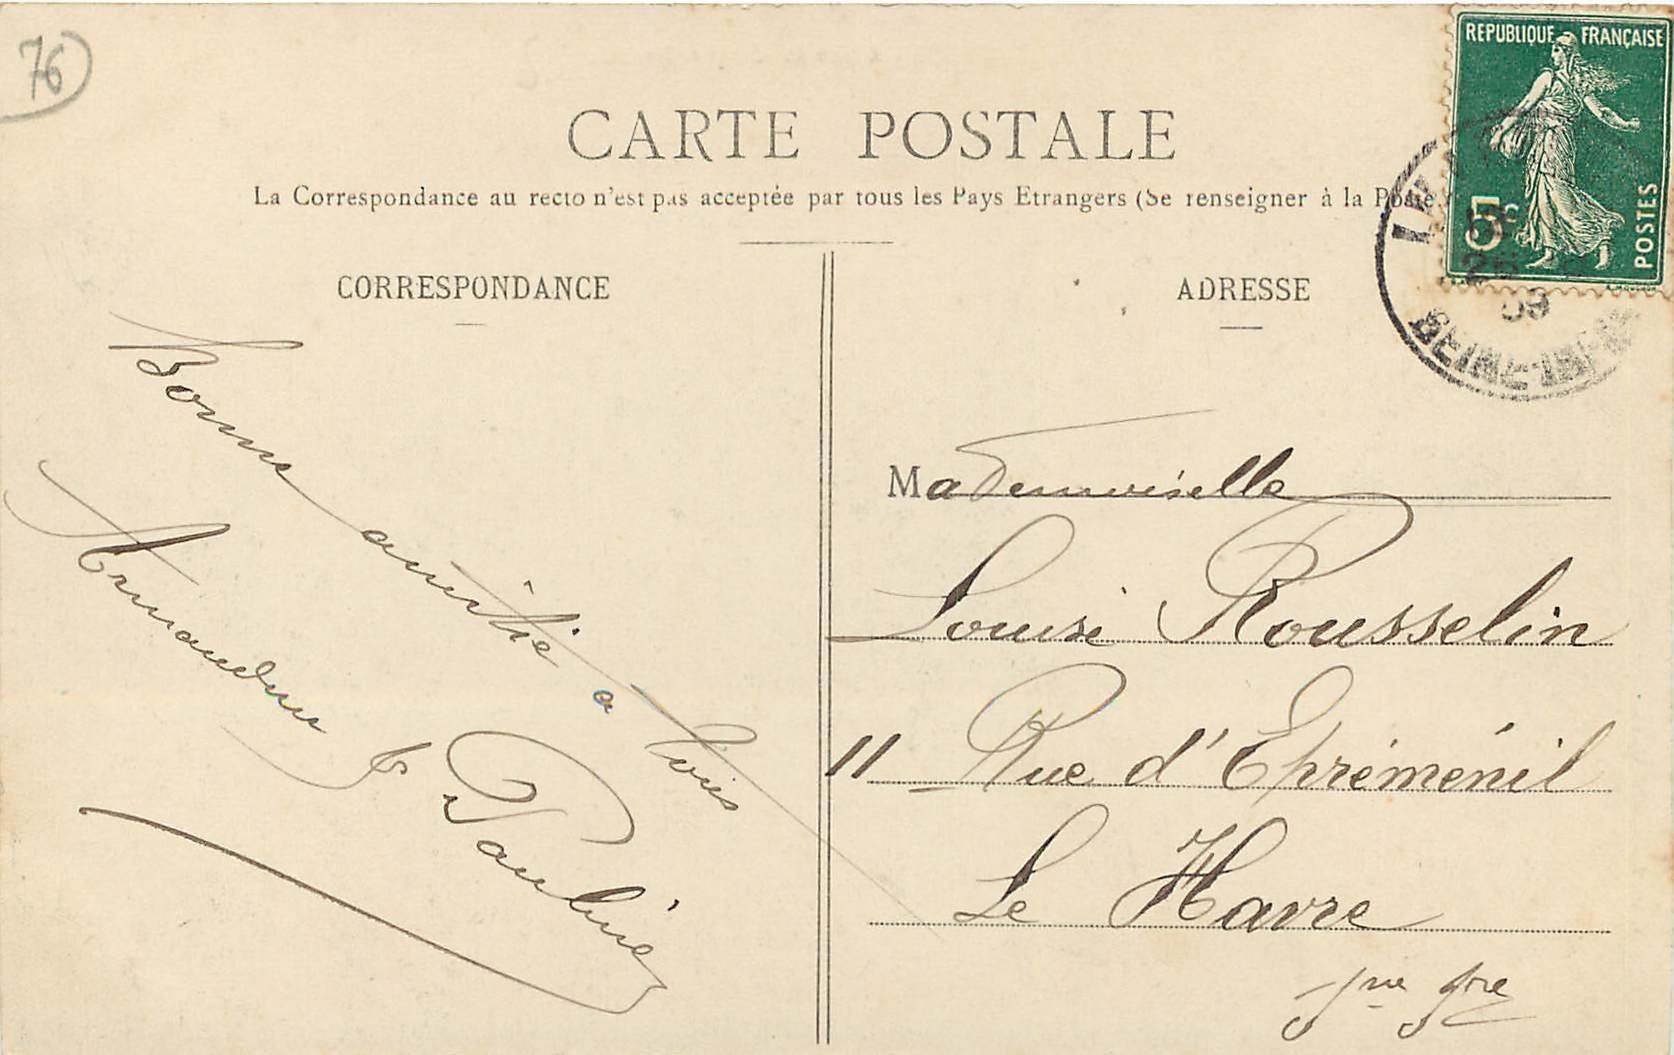 76
CARTE POSTALE
La Correspondance au recto n'est pas acceptée par tous les Pays Etrangers (Se renseigner à la Poste.)
REPUBLIQUE FRANÇAISE
5c
POSTES
CORRESPONDANCE
Bonne amitié à tous
Pauline
ADRESSE
Mademoiselle
Louise Rousselin
11 Rue d'Epréménil
Le Havre
Sne Fre